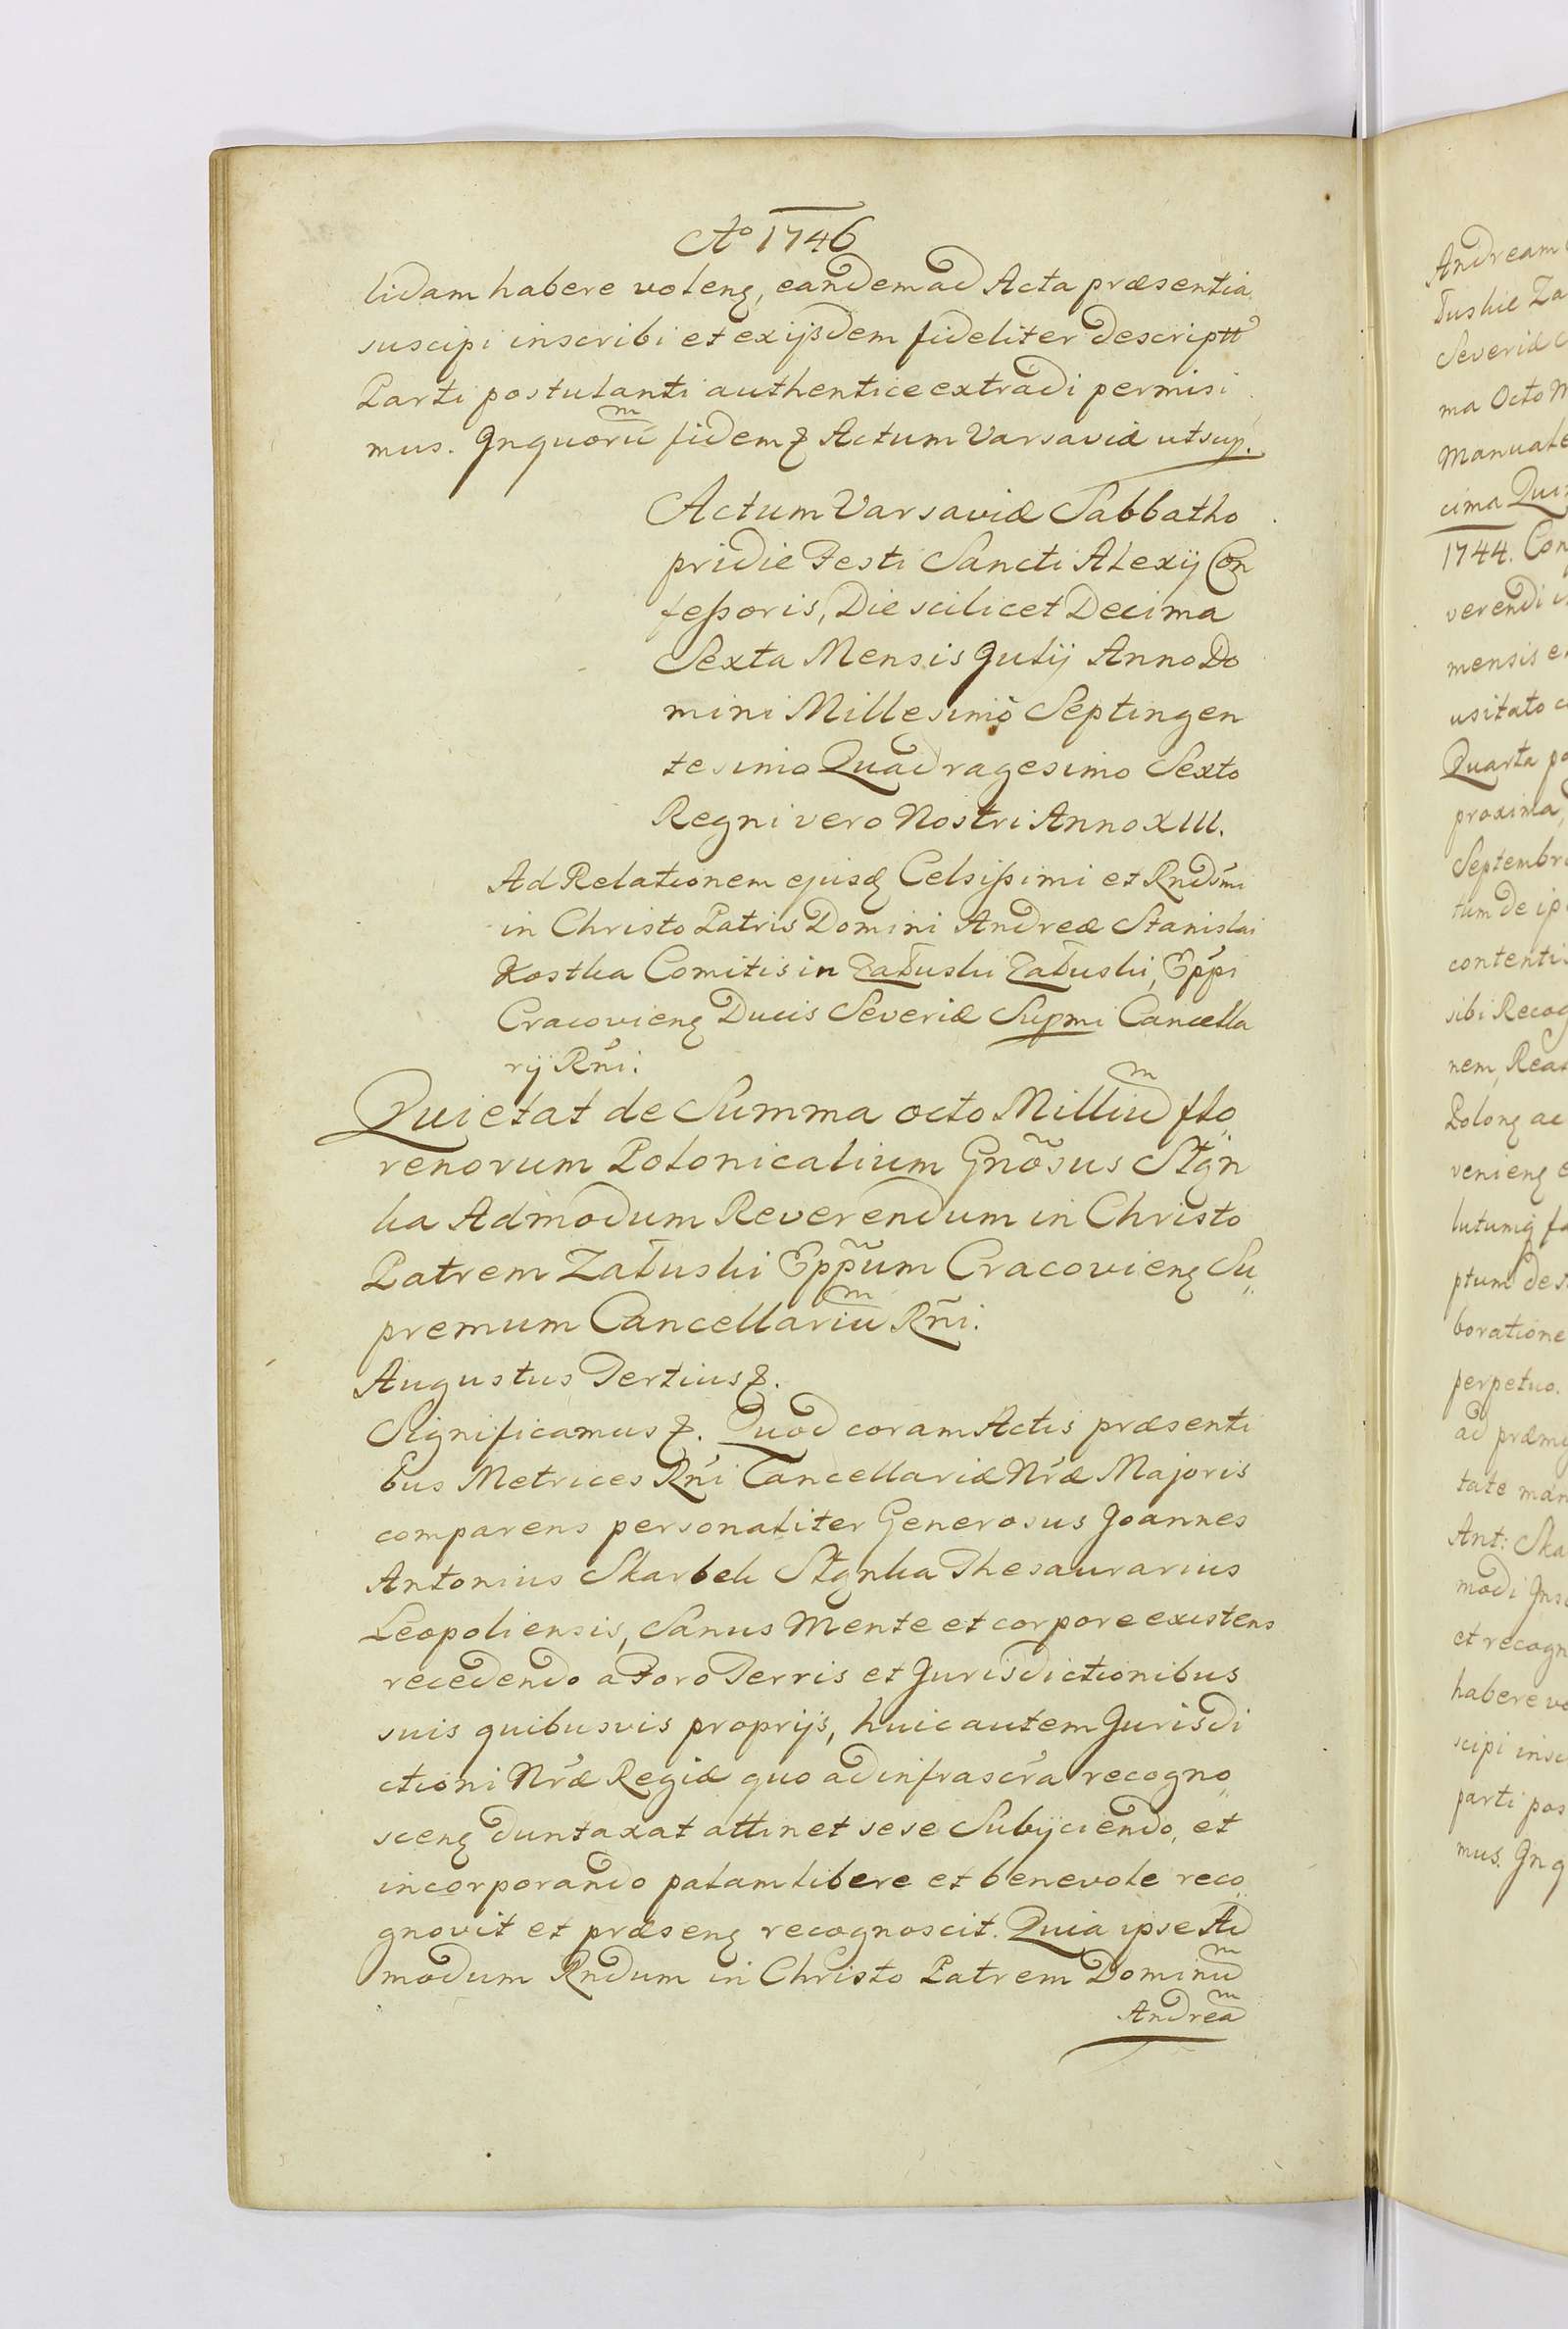 Ao 1746
lidam habere volenȩ, eandem ad Acta præsentia
suscipi inscribi et ex ijsdem fideliter descriptt
Parti postulanti authentice extradi permisi
mus. Jnquorũm fidem & Actum Varsaviæ ut sup.
Actum Varsaviæ Sabbatho
pridie Festi Sancti Alexij Con
feßoris, Die scilicet Decima
Sexta Mensis Julij Anno Do
mini Millesimo Septingen
tesimo Quadragesimo Sexto
Regni vero Nostri Anno XIII.
Ad Relationem ejusḑ Celsißimi et Rndsm̃i
in Christo Patris Domini Andreæ Stanislai
Kostka Comitis in Załuski Załuski, Epp̃i
Cracovienȩ Ducis Severiæ Supmi Cancella
rij Rñi.
Quietat de Summa octo Milliũm flo„
renorum Polonicalium Gnõsus Stgñ
ka Admodum Reverendum in Christo
Patrem Załuski Epp̃um Cracovienȩ Su„
premum Cancellariũm Rñi.
Augustus Tertius &.
Significamus &. Quod coram Actis præsenti
bus Metrices Rñi Cancellariæ Nr̃æ Majoris
comparens personaliter Generosus Joannes
Antonius Skarbek Stgnka Thesaurarius
Leopoliensis, Sanus Mente et corpore existens
recedendo a Foro Terris et Jurisdictionibus
suis quibusvis proprijs, huic autem Jurisdi
ctioni Nr̃æ Regiæ quo ad infrascr̃a recogno„
scenȩ duntaxat attinet sese Subijciendo, et
incorporando palam libere et benevole reco„
gnovit et præsenȩ recognoscit. Quia ipse Ad
modum Rndum in Christo Patrem Dominũm
Andreãm
Andream
łuskie Za
Severiæ
ma Octo M
Manuale
cima Quin
1744. Con
verendi
mensis
usitato
Quarta po
proxima,
Septembr
tum de ip
contentis
sibi Recog
nem, Rea
Polonȩ ac
venienȩ
lutumq̃ fa
ptum de
boratione
perpetuo.
ad præm
tate man
Ant: Ska
modi Jns
et recogn
habere vo
scipi insc
parti pos
mus. Jnq